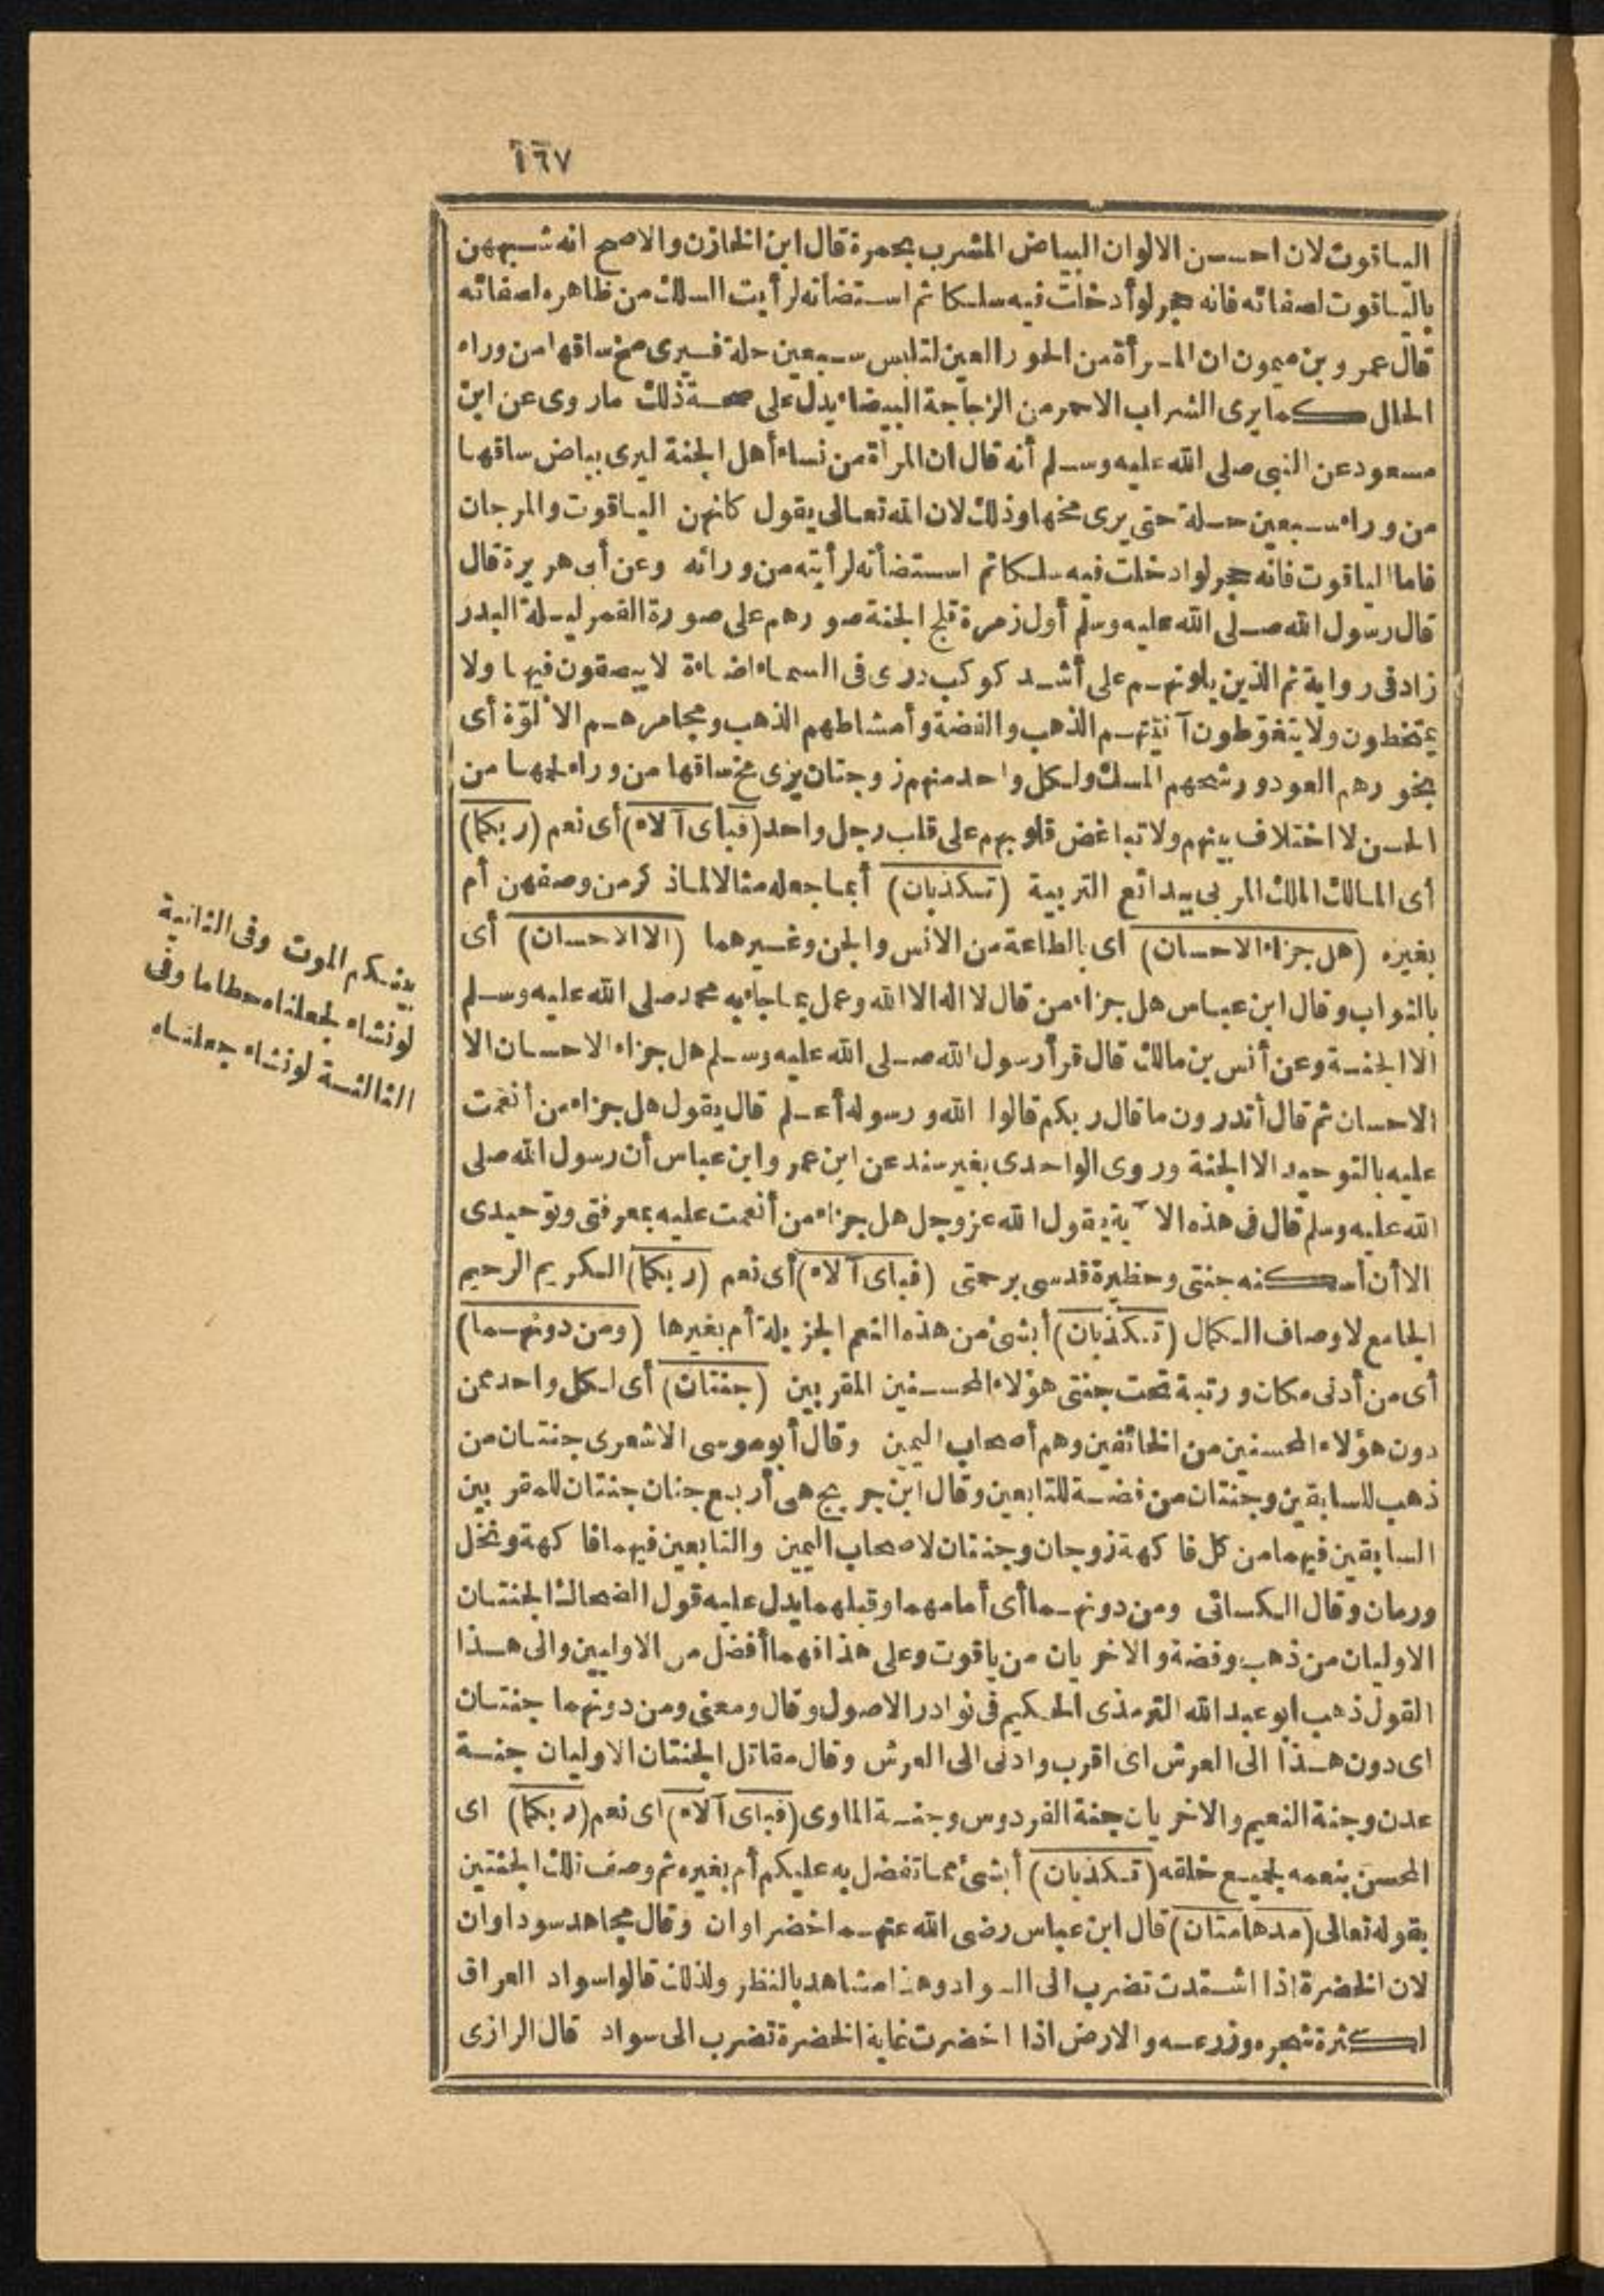 ١٦٧
الياقوت لان احسن الالوان البياض المشرب بحمرة قال ابن الخازن والاصح انه شبههن
بالياقوت لصفائه فانه حجر لو أدخلت فيه سلكا ثم استضأته لرأيت السلك من ظاهره لصفائه
قال عمر وبن ميمون ان المرأة من الحور العين لتلبس سبعين حلة فيرى مخ ساقها من وراء
الحلل كما يرى الشراب الاحمر من الزجاجة البيضاء يدل على صحة ذلك ما روى عن ابن
مسعود عن النبى صلى الله عليه وسلم أنه قال ان المرأة من نساء أهل الجنة ليرى بياض ساقها
من وراء سبعين حلة حتى يرى مخها وذلك لان الله تعالى يقول كانهن الياقوت والمرجان
فاما الياقوت فانه حجر لو ادخلت فيه سلكا ثم استضأته لرأيته من ورائه وعن أبى هريرة قال
قال رسول الله صلى الله عليه وسلم أول زمرة تلج الجنة صورهم على صورة القمر ليلة البدر
زاد فى رواية ثم الذين يلونهم على أشد كوكب درى فى السماء اضاءة لا يبصقون فيها ولا
يتمخطون ولا يتغوطون آنيتهم الذهب والفضة وأمشاطهم الذهب ومجامرهم الألوّة أى
بخورهم العود ورشحهم المسك ولكل واحد منهم زوجتان يرى مخ ساقها من وراء لحمها من
الحسن لا اختلاف بينهم ولا تباغض قلوبهم على قلب رجل واحد (فبأى آلاء) أى نعم (ربكما)
أى المالك الملك المربى ببدائع التربية (تكذبان) أبما جعله مثالا لما ذكر من وصفهن أم
بغيره (هل جزاء الاحسان) اى بالطاعة من الانس والجن وغيرهما (الا الاحسان) أى
بالثواب وقال ابن عباس هل جزاء من قال لا اله الا الله وعمل بما جاء به محمد صلى الله عليه وسلم
الا الجنة وعن أنس بن مالك قال قرأ رسول الله صلى الله عليه وسلم هل جزاء الاحسان الا
الاحسان ثم قال أتدرون ما قال ربكم قالوا الله ورسوله أعلم قال يقول هل جزاء من أنعمت
عليه بالتوحيد الا الجنة وروى الواحدى بغير سند عن ابن عمر وابن عباس أن رسول الله صلى
الله عليه وسلم قال فى هذه الآية يقول الله عز وجل هل جزاء من أنعمت عليه بمعرفتى وتوحيدى
الا أن أسكنه جنتى وحظيرة قدسى برحمتى (فباى آلاء) أى نعم (ربكما) الكريم الرحيم
الجامع لاوصاف الكمال (تكذبان) أبشئ من هذه النعم الجزيلة أم بغيرها (ومن دونهما)
أى من أدنى مكان ورتبة تحت جنتى هؤلاء المحسنين المقربين (جنتان) أى لكل واحد ممن
دون هؤلاء المحسنين من الخائفين وهم أصحاب اليمين وقال أبو موسى الاشعرى جنتان من
ذهب للسابقين وجنتان من فضة للتابعين وقال ابن جريج هى أربع جنان جنتان للمقربين
السابقين فيهما من كل فاكهة زوجان وجنتان لاصحاب اليمين والتابعين فيهما فاكهة ونخل
ورمان وقال الكسائى ومن دونهما أى أمامهما وقبلهما يدل عليه قول الضحاك الجنتان
الاوليان من ذهب وفضة والاخريان من ياقوت وعلى هذا فهما أفضل من الاوليين والى هذا
القول ذهب ابو عبد الله الترمذى الحكيم فى نوادر الاصول وقال ومعنى ومن دونهما جنتان
اى دون هذا الى العرش اى اقرب وادنى الى العرش وقال مقاتل الجنتان الاوليان جنة
عدن وجنة النعيم والاخريان جنة الفردوس وجنة الماوى (فباى آلاء) اى نعم (ربكما) اى
المحسن بنعمه لجميع خلقه (تكذبان) أبشئ مما تفضل به عليكم أم بغيره ثم وصف تلك الجنتين
بقوله تعالى (مدهامتان) قال ابن عباس رضى الله عنهما خضراوان وقال مجاهد سوداوان
لان الخضرة اذا اشتدت تضرب الى السواد وهذا مشاهد بالنظر ولذلك قالوا سواد العراق
لكثرة شجره وزرعه والارض اذا اخضرت غاية الخضرة تضرب الى سواد قال الرازى
بينكم الموت وفى الثانية
لو نشاء لجعلناه حطاما وفى
الثالثة لو نشاء جعلناه